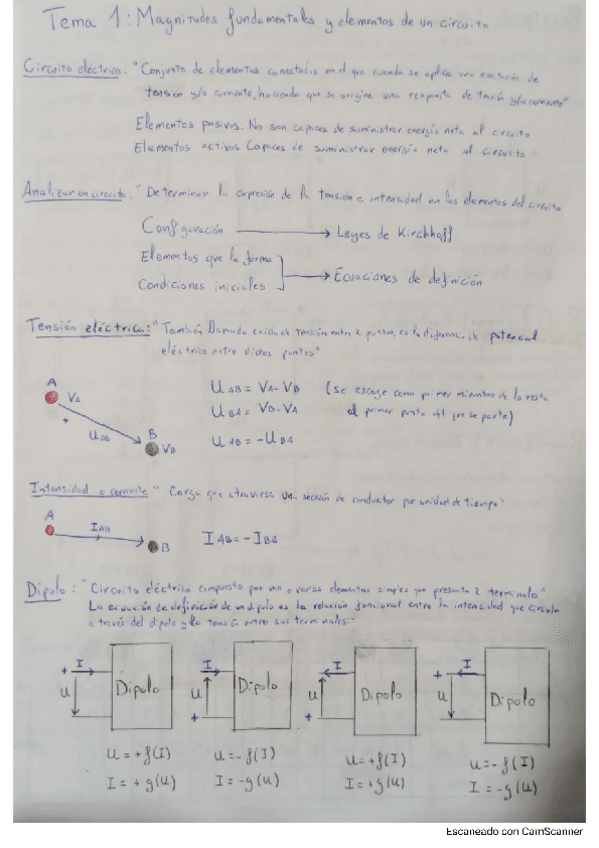 Tema 1: Magnitudes fundamentales y elementos de un circuito
Circuito eléctrico: "Conjunto de elementos conectados en el que cuando se aplica una excitación de
tensión y/o corriente, haciendo que se origine una respuesta de tensión y/o corriente"
Elementos pasivos: No son capaces de suministrar energía neta al circuito
Elementos activos: Capaces de suministrar energía neta al circuito
Analizar un circuito: "Determinar la expresión de la tensión e intensidad en los elementos del circuito
Configuración → Leyes de Kirchhoff
Elementos que lo forma
Condiciones iniciales
→ Ecuaciones de definición
Tensión eléctrica: "También llamada caída de tensión entre 2 puntos, es la diferencia de potencial
eléctrico entre dichos puntos"
A
VA
+
UAB
B
VB
UAB = VA - VB (se escoge como primer miembro de la resta
UBA = VB - VA al primer punto del que se parte)
UAB = -UBA
Intensidad o corriente "Carga que atraviesa una sección de conductor por unidad de tiempo"
A
IAB
B
IAB = -IBA
Dipolo: "Circuito eléctrico compuesto por uno o varios elementos simples que presenta 2 terminales"
La ecuación de definición de un dipolo es la relación funcional entre la intensidad que circula
a través del dipolo y la tensión entre sus terminales"
+ I U Dipolo
I U + Dipolo
I U + Dipolo
+ I U Dipolo
U = +f(I) U = -f(I) U = +f(I) U = -f(I)
I = +g(U) I = -g(U) I = +g(U) I = -g(U)
Escaneado con CamScanner